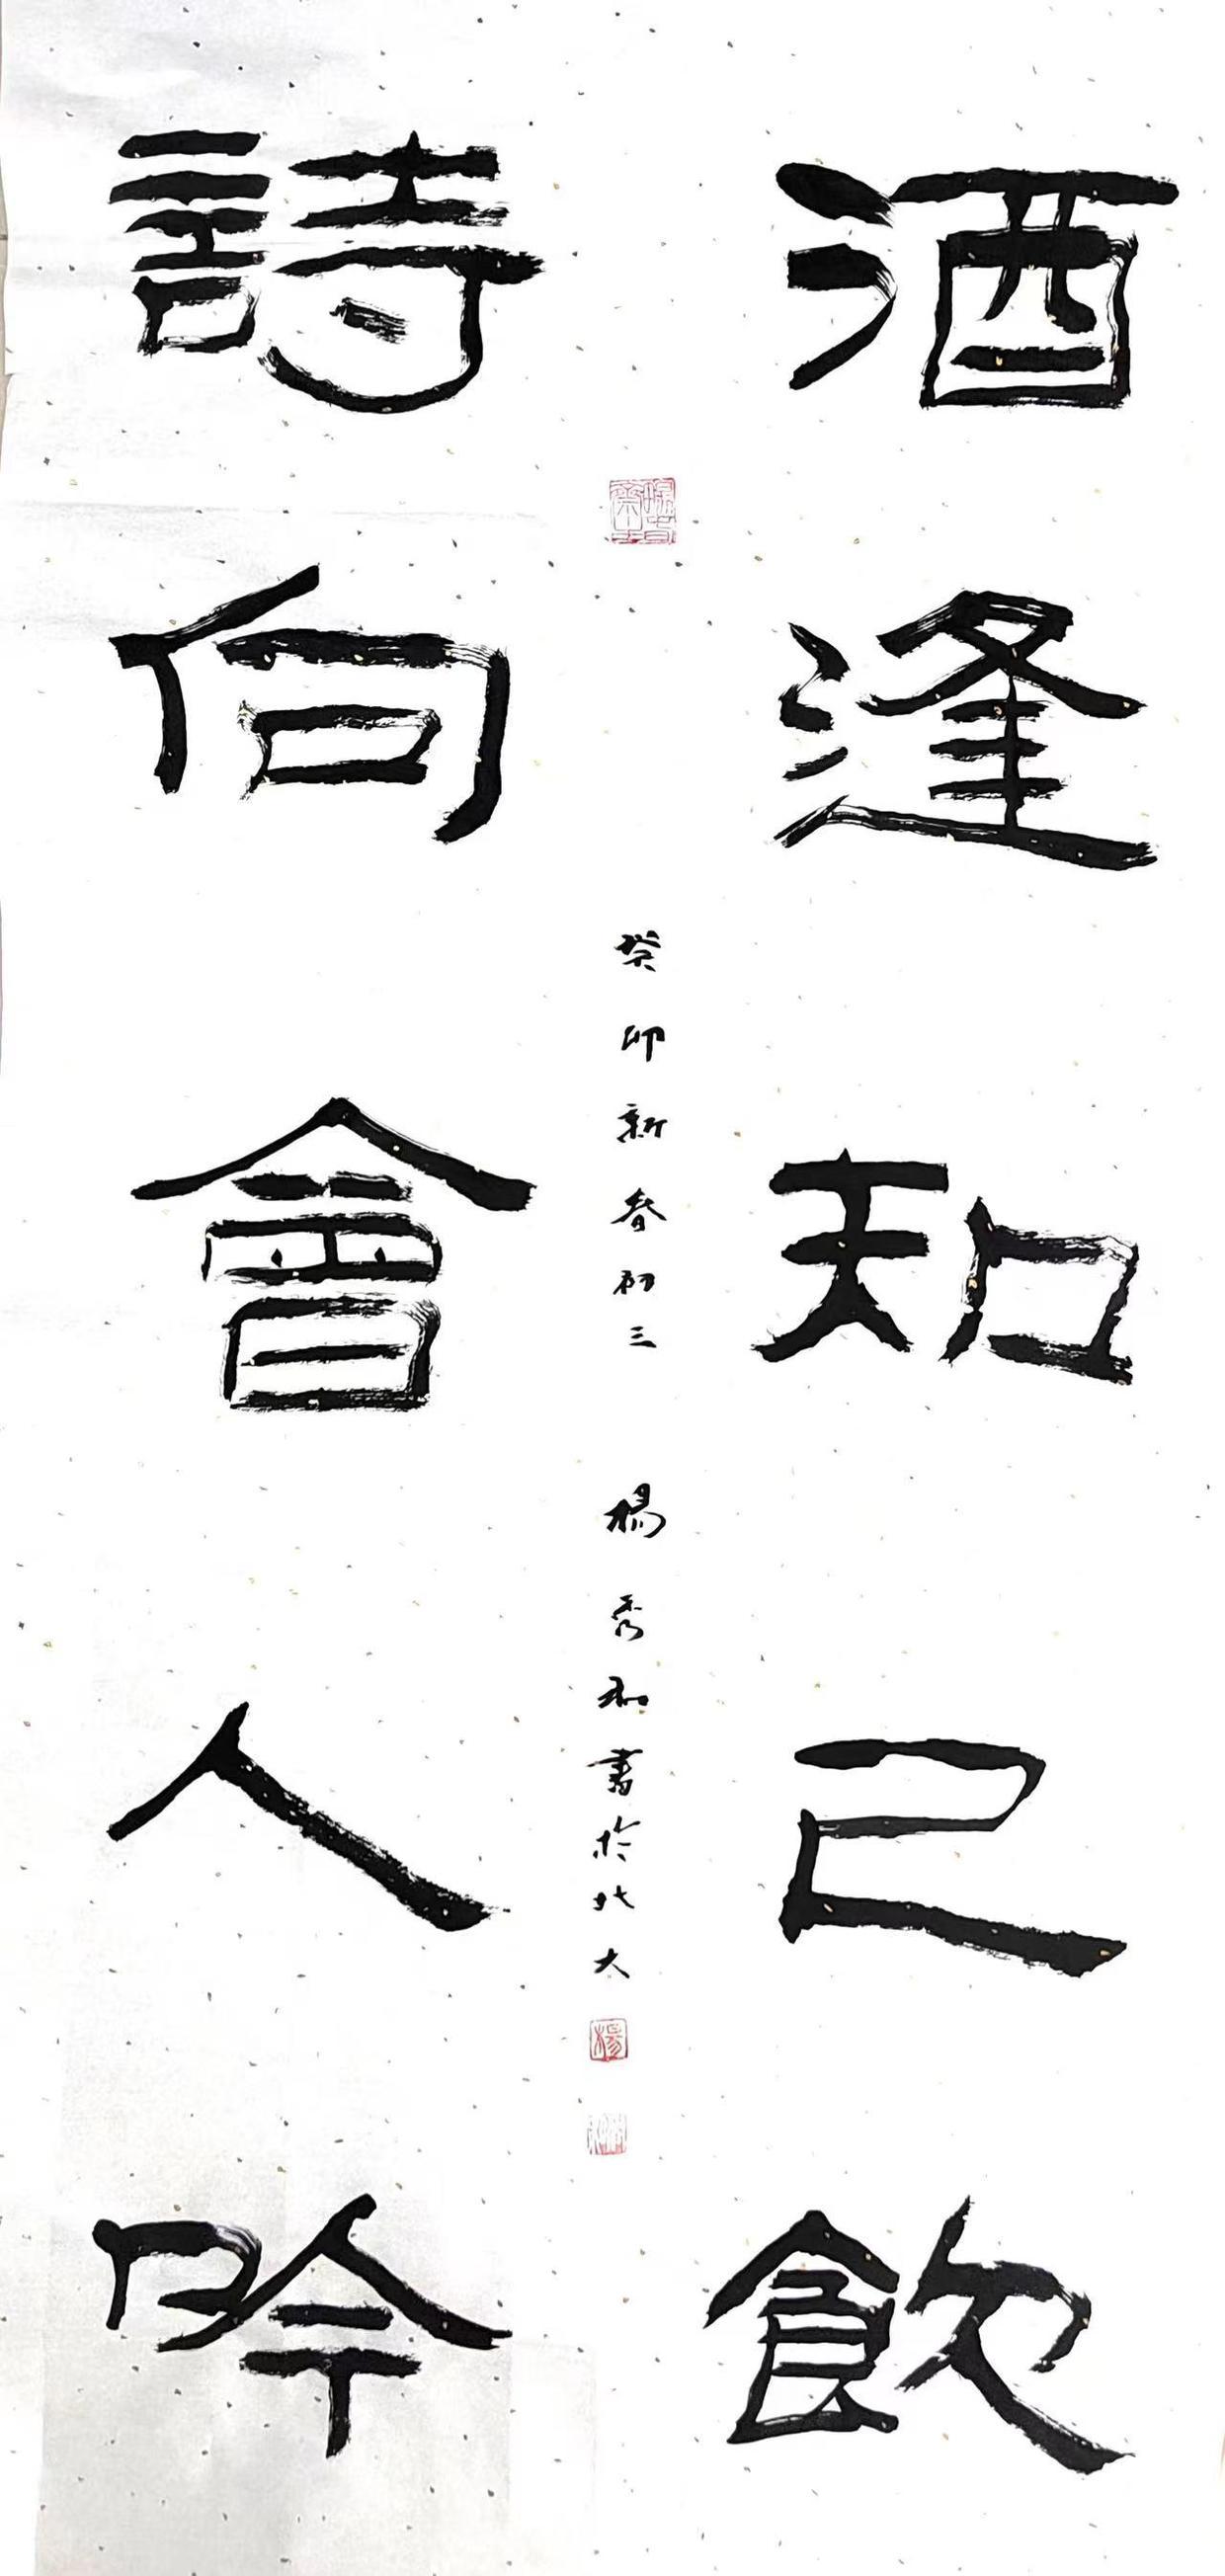 酒逢知己飲
詩向會人吟
癸卯新春初三 楊秀和書於北大
楊